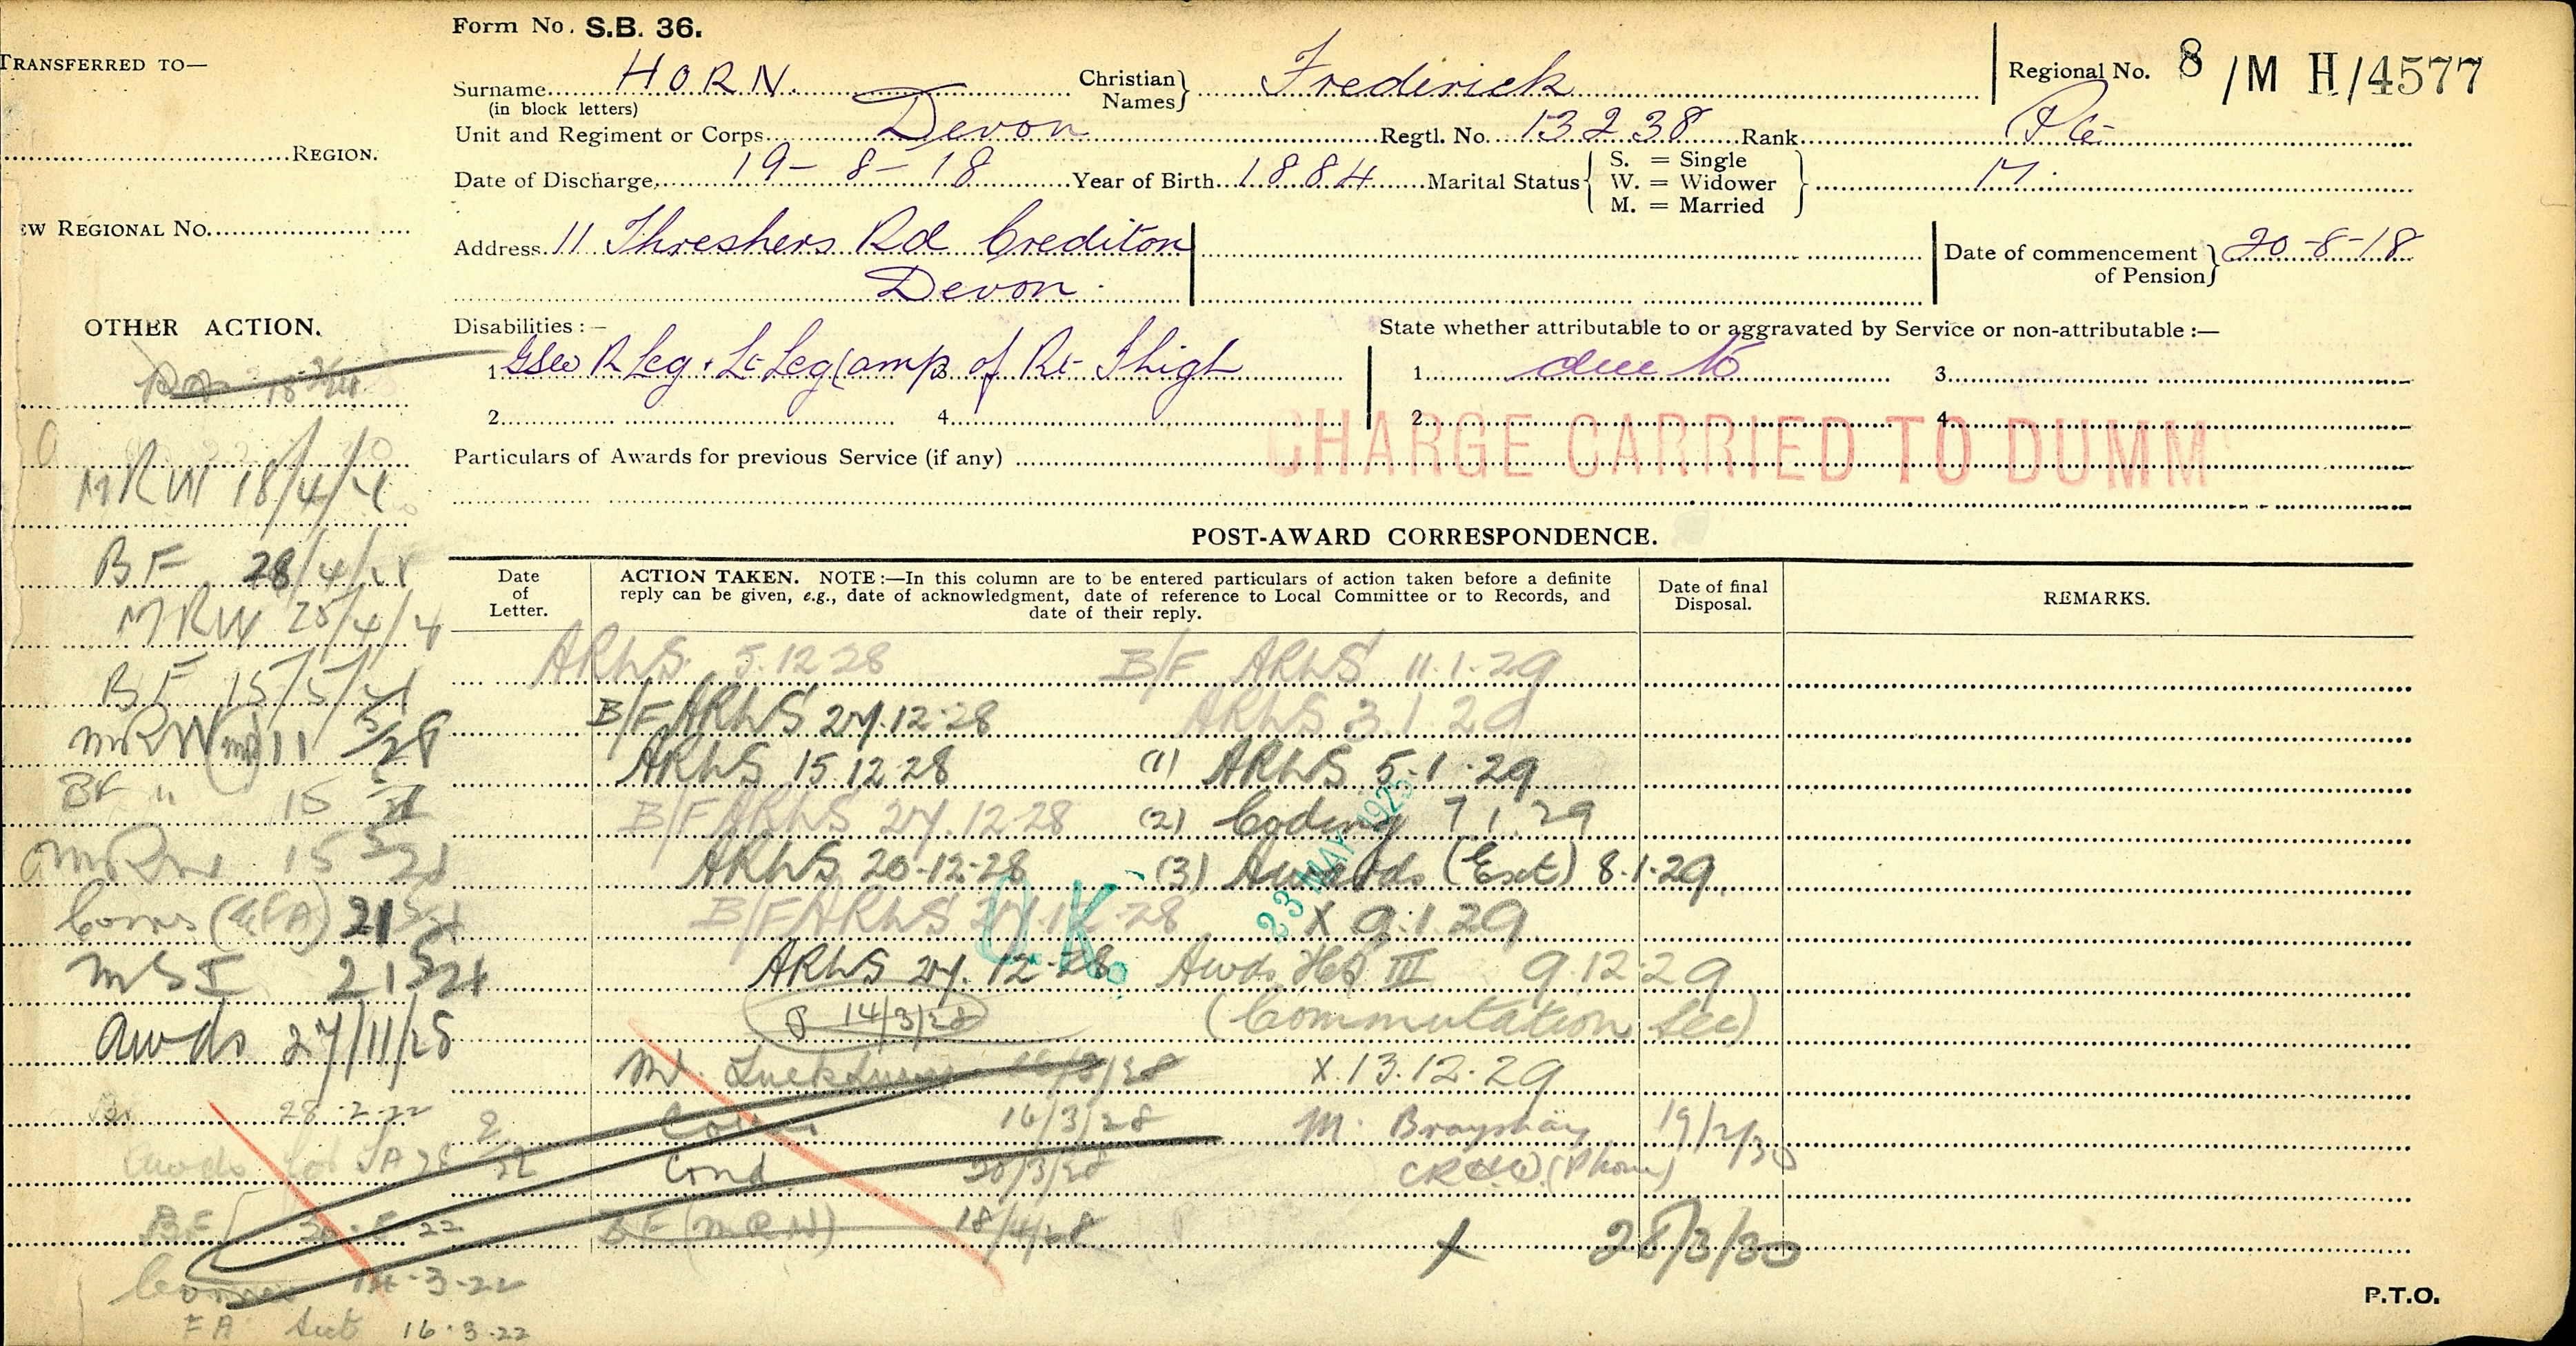 Form No. S.B. 36.
TRANSFERRED TO—
REGION.
EW REGIONAL No.
OTHER ACTION.
MRW 18/4/21
BF 28/4/21
MRW 25/4/21
BF 15/5/21
MRW 11 5/28
BF " 15
MRW 15 5/21
21
MSI 21 5/21
Awds 27/11/25
28-2-22
Awds
BF 22
14-3-22
FA 16.3.22
Surname HORN. Christian Names} Frederick Regional No. 8/M H/4577
(in block letters)
Unit and Regiment or Corps Devon Regtl. No. 13238 Rank Pte
Date of Discharge 19-8-18 Year of Birth 1884 Marital Status { S. = Single W. = Widower M. = Married } M.
Address 11 Threshers Rd Crediton
Devon.
Date of commencement of Pension} 20-8-18
Disabilities :—
State whether attributable to or aggravated by Service or non-attributable :—
1. GSW R Leg & Lt Leg (amp 3. of Rt Thigh
1. due to 3.
2. 4.
2. 4.
CHARGE CARRIED TO DUMM
Particulars of Awards for previous Service (if any)
POST-AWARD CORRESPONDENCE.
Date of Letter.
ACTION TAKEN. NOTE:—In this column are to be entered particulars of action taken before a definite
reply can be given, e.g., date of acknowledgment, date of reference to Local Committee or to Records, and
date of their reply.
Date of final Disposal.
REMARKS.
ARWS. 5.12 28 B/F ARWS 11.1.29
B/F ARWS 27.12.28 ARWS 3.1.29
ARWS 15.12.28 (1) ARWS 5.1.29
B/F ARWS 27.12.28 (2) Coding 7.1.29
ARWS 20.12.28 (3) Awards (Ext) 8.1.29
B/F ARWS 27.12.28 X 9.1.29
O.K.
23 MAY 1925
ARWS 27.12.28 Awds HQ III 9.12.29
P 14/3/28 (Commutation Sec)
X.13.12.29
16/3/28 M. Brayshay 19/2/30
Cond 20/3/28 (Phone)
BF (MRW) 18/4/28 X 28/3/30
P.T.O.